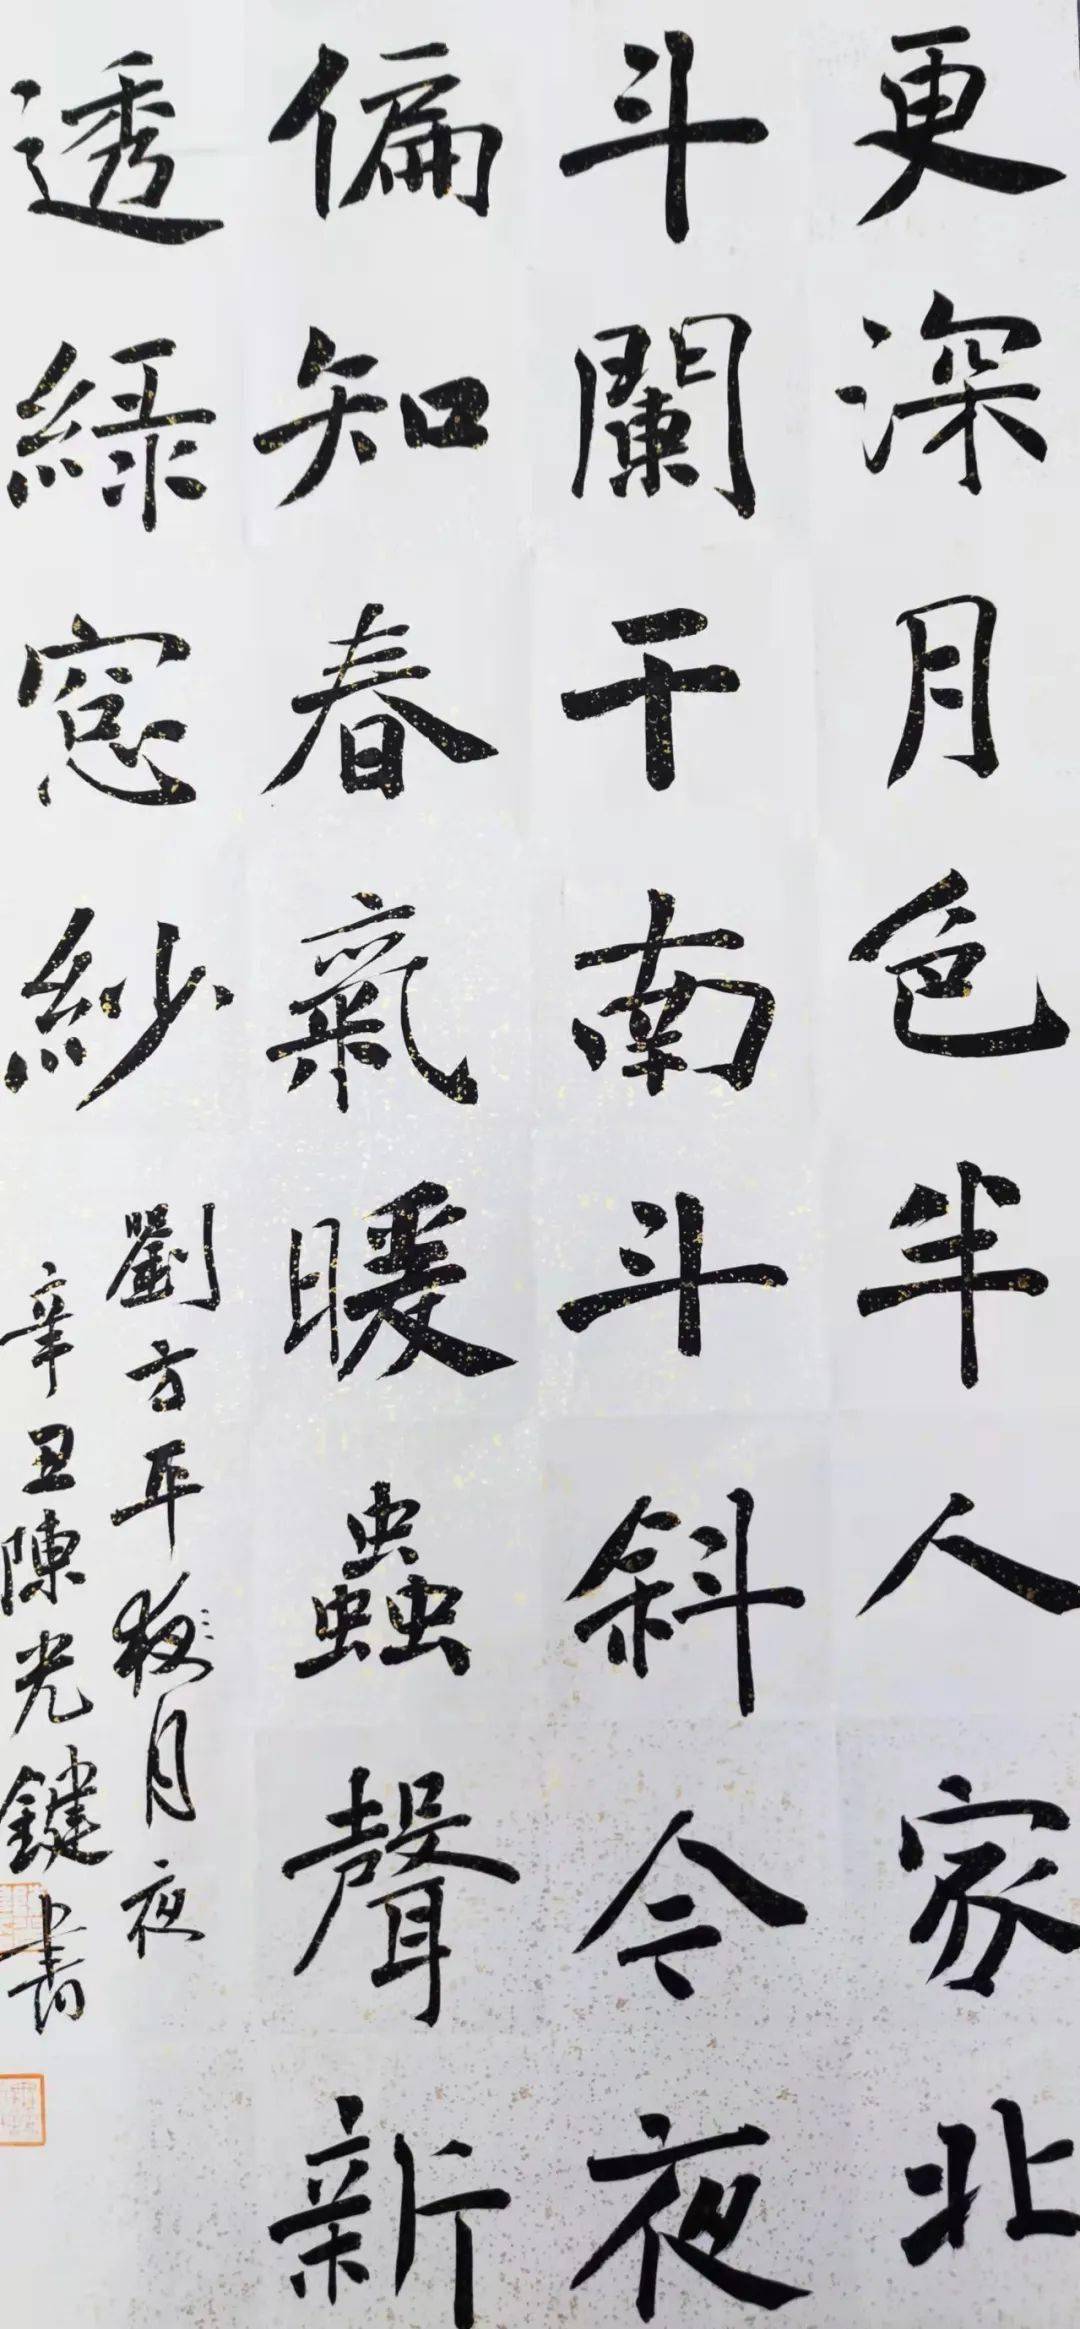 更深月色半人家北
斗闌干南斗斜今夜
偏知春氣暖蟲聲新
透綠窓紗
劉方平夜月夜
辛丑陳光鍵書